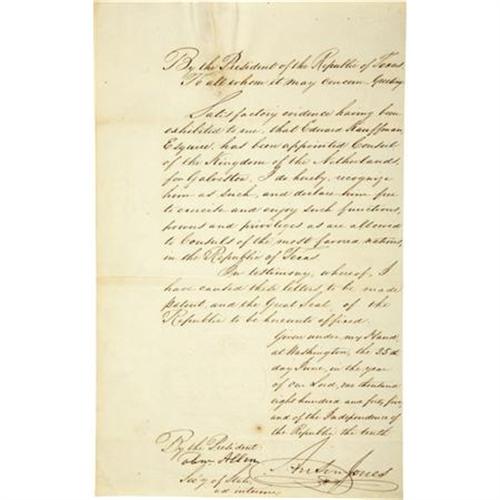 By the President of the Republic of Texas
To all whom it may concern Greeting
Satisfactory evidence having been
exhibited to me, that Edward Kauffman
Esquire, has been appointed Consul
of the Kingdom of the Netherlands,
for Galveston. I do hereby, recognize
him as such, and declare him free
to exercise and enjoy such functions,
powers and privileges as are allowed
to Consuls of the most favored nations,
in the Republic of Texas
In testimony, whereof, I
have caused these letters, to be made
patent, and the Great Seal, of the
Republic to be hereunto affixed.
Given under my Hand,
at Washington, the 25th
day June, in the year
of our Lord, one thousand
eight hundred and forty five
and of the Independence of
the Republic the tenth
By the President
Allen
Secy of State
ad interim
Anson Jones